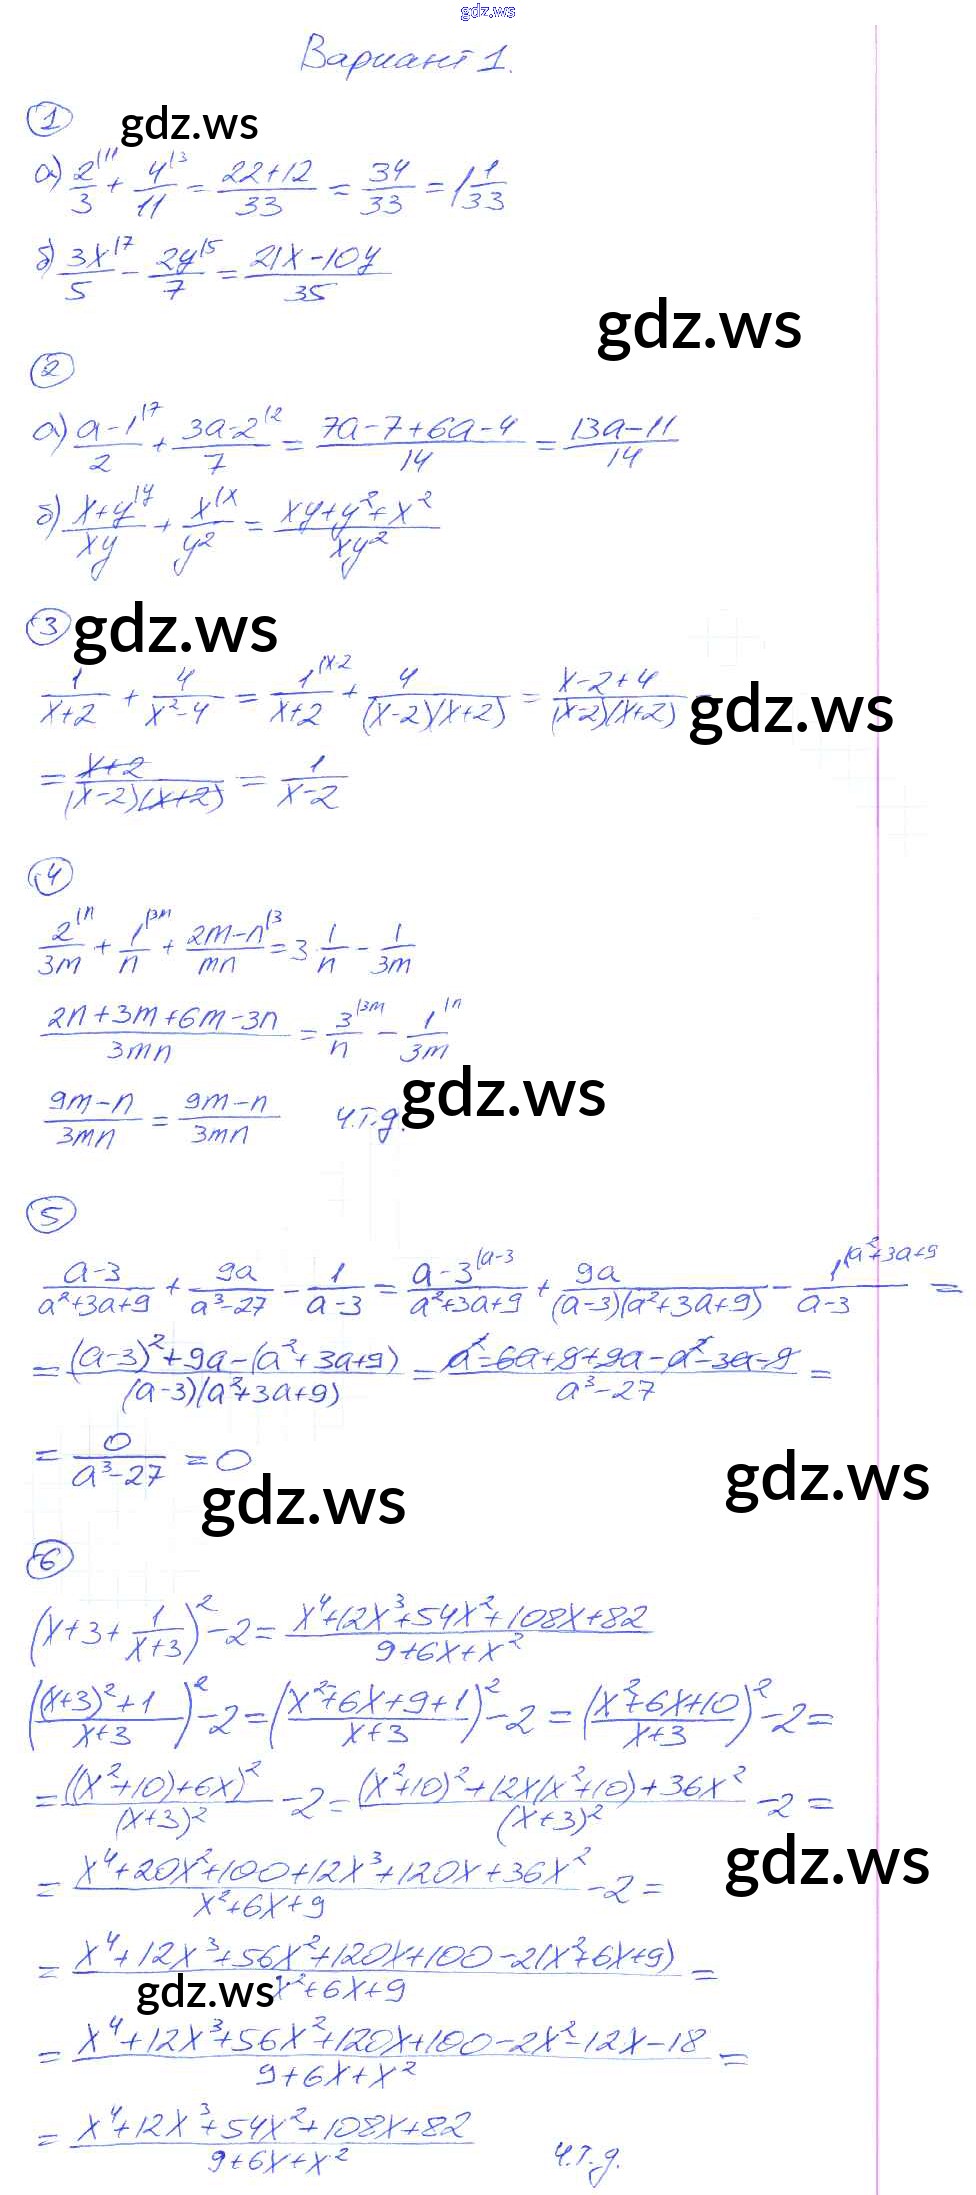 gdz.ws
Вариант 1.
1 gdz.ws
а) 2/3 |11 + 4/11 |3 = (22+12)/33 = 34/33 = 1 1/33
б) 3x/5 |7 - 2y/7 |5 = (21x-10y)/35
gdz.ws
2
а) (a-1)/2 |7 + (3a-2)/7 |2 = (7a-7+6a-4)/14 = (13a-11)/14
б) (x+y)/xy |y + x/y² |x = (xy+y²+x²)/xy²
3 gdz.ws
1/(x+2) + 4/(x²-4) = 1/(x+2) |x-2 + 4/((x-2)(x+2)) = (x-2+4)/((x-2)(x+2)) gdz.ws
= (x+2)/((x-2)(x+2)) = 1/(x-2)
4
2/3m |n + 1/n |3m + (2m-n)/mn |3 = 3 1/n - 1/3m
(2n+3m+6m-3n)/3mn = 3/n |3m - 1/3m |n
gdz.ws
(9m-n)/3mn = (9m-n)/3mn ч.т.д.
5
(a-3)/(a²+3a+9) + 9a/(a³-27) - 1/(a-3) = (a-3)/(a²+3a+9) |a-3 + 9a/((a-3)(a²+3a+9)) - 1/(a-3) |a²+3a+9 =
= ((a-3)²+9a-(a²+3a+9))/((a-3)(a²+3a+9)) = (a²-6a+9+9a-a²-3a-9)/(a³-27) =
= 0/(a³-27) = 0
gdz.ws gdz.ws
6
(x+3+1/(x+3))²-2 = (x⁴+12x³+54x²+108x+82)/(9+6x+x²)
(((x+3)²+1)/(x+3))²-2 = ((x²+6x+9+1)/(x+3))²-2 = ((x²+6x+10)/(x+3))²-2 =
= ((x²+10)+6x)²/(x+3)² -2 = ((x²+10)²+12x(x²+10)+36x²)/(x+3)² -2 =
gdz.ws
= (x⁴+20x²+100+12x³+120x+36x²)/(x²+6x+9) -2 =
= (x⁴+12x³+56x²+120x+100-2(x²+6x+9))/(x²+6x+9) =
gdz.ws
= (x⁴+12x³+56x²+120x+100-2x²-12x-18)/(9+6x+x²) =
= (x⁴+12x³+54x²+108x+82)/(9+6x+x²) ч.т.д.